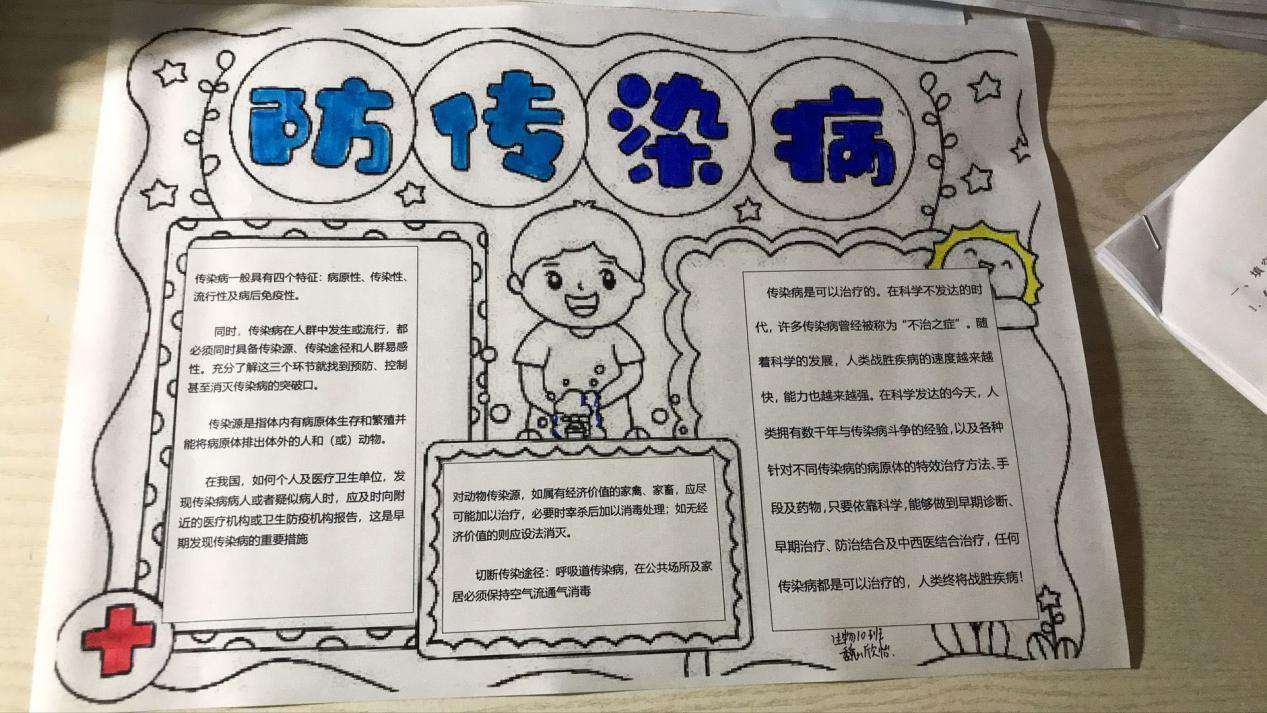 防传染病
传染病一般具有四个特征：病原性、传染性、
流行性及病后免疫性。
同时，传染病在人群中发生或流行，都
必须同时具备传染源、传染途径和人群易感
性。充分了解这三个环节就找到预防、控制
甚至消灭传染病的突破口。
传染源是指体内有病原体生存和繁殖并
能将病原体排出体外的人和（或）动物。
在我国，如何个人及医疗卫生单位，发
现传染病病人或者疑似病人时，应及时向附
近的医疗机构或卫生防疫机构报告，这是早
期发现传染病的重要措施
对动物传染源，如属有经济价值的家禽、家畜，应尽
可能加以治疗，必要时宰杀后加以消毒处理；如无经
济价值的则应设法消灭。
切断传染途径：呼吸道传染病，在公共场所及家
居必须保持空气流通气消毒
传染病是可以治疗的。在科学不发达的时
代，许多传染病曾经被称为“不治之症”。随
着科学的发展，人类战胜疾病的速度越来越
快，能力也越来越强。在科学发达的今天，人
类拥有数千年与传染病斗争的经验，以及各种
针对不同传染病的病原体的特效治疗方法、手
段及药物，只要依靠科学，能够做到早期诊断、
早期治疗、防治结合及中西医结合治疗，任何
传染病都是可以治疗的，人类终将战胜疾病！
生物10班
魏欣怡.
一、填空
1.